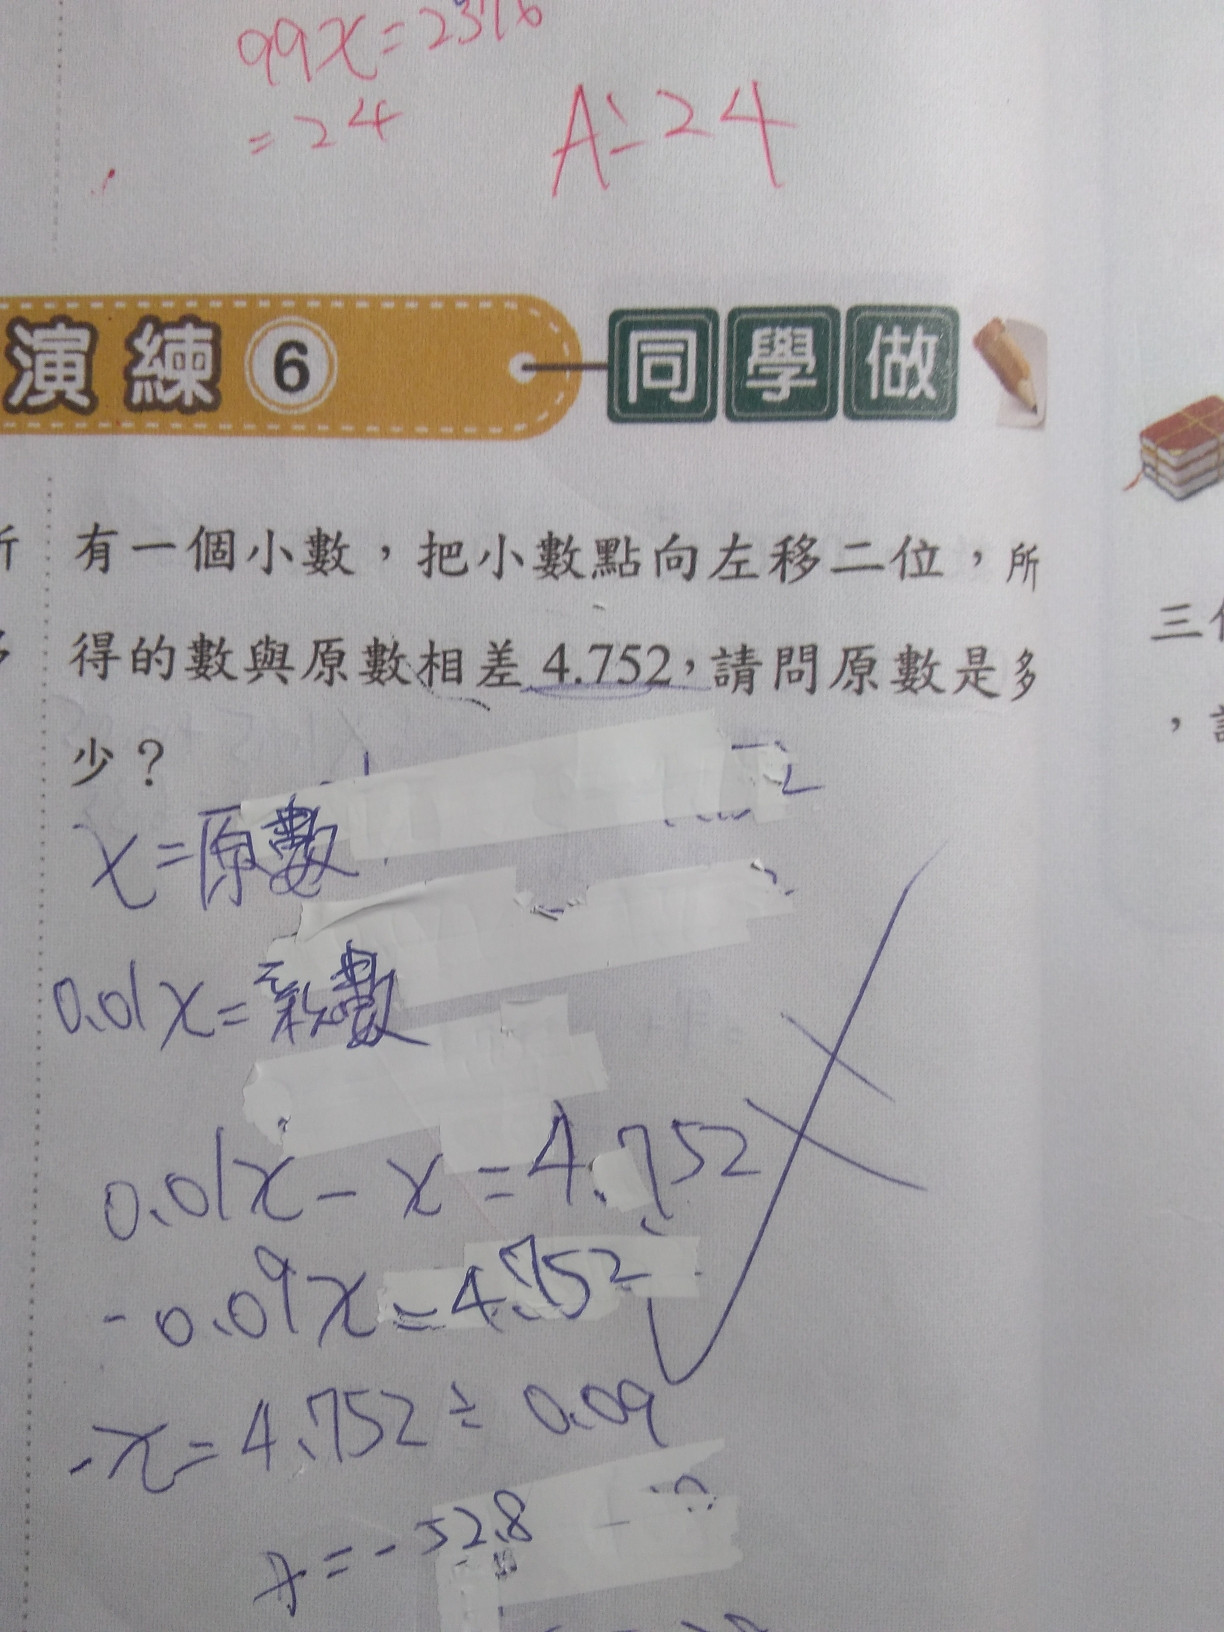 99x=2376
=24
A:24
演練6 同學做
有一個小數，把小數點向左移二位，所
得的數與原數相差4.752，請問原數是多
少？
x=原數
0.01x=新數
0.01x-x=4.752
-0.09x=4.752
-x=4.752÷0.09
x=-52.8
三
，